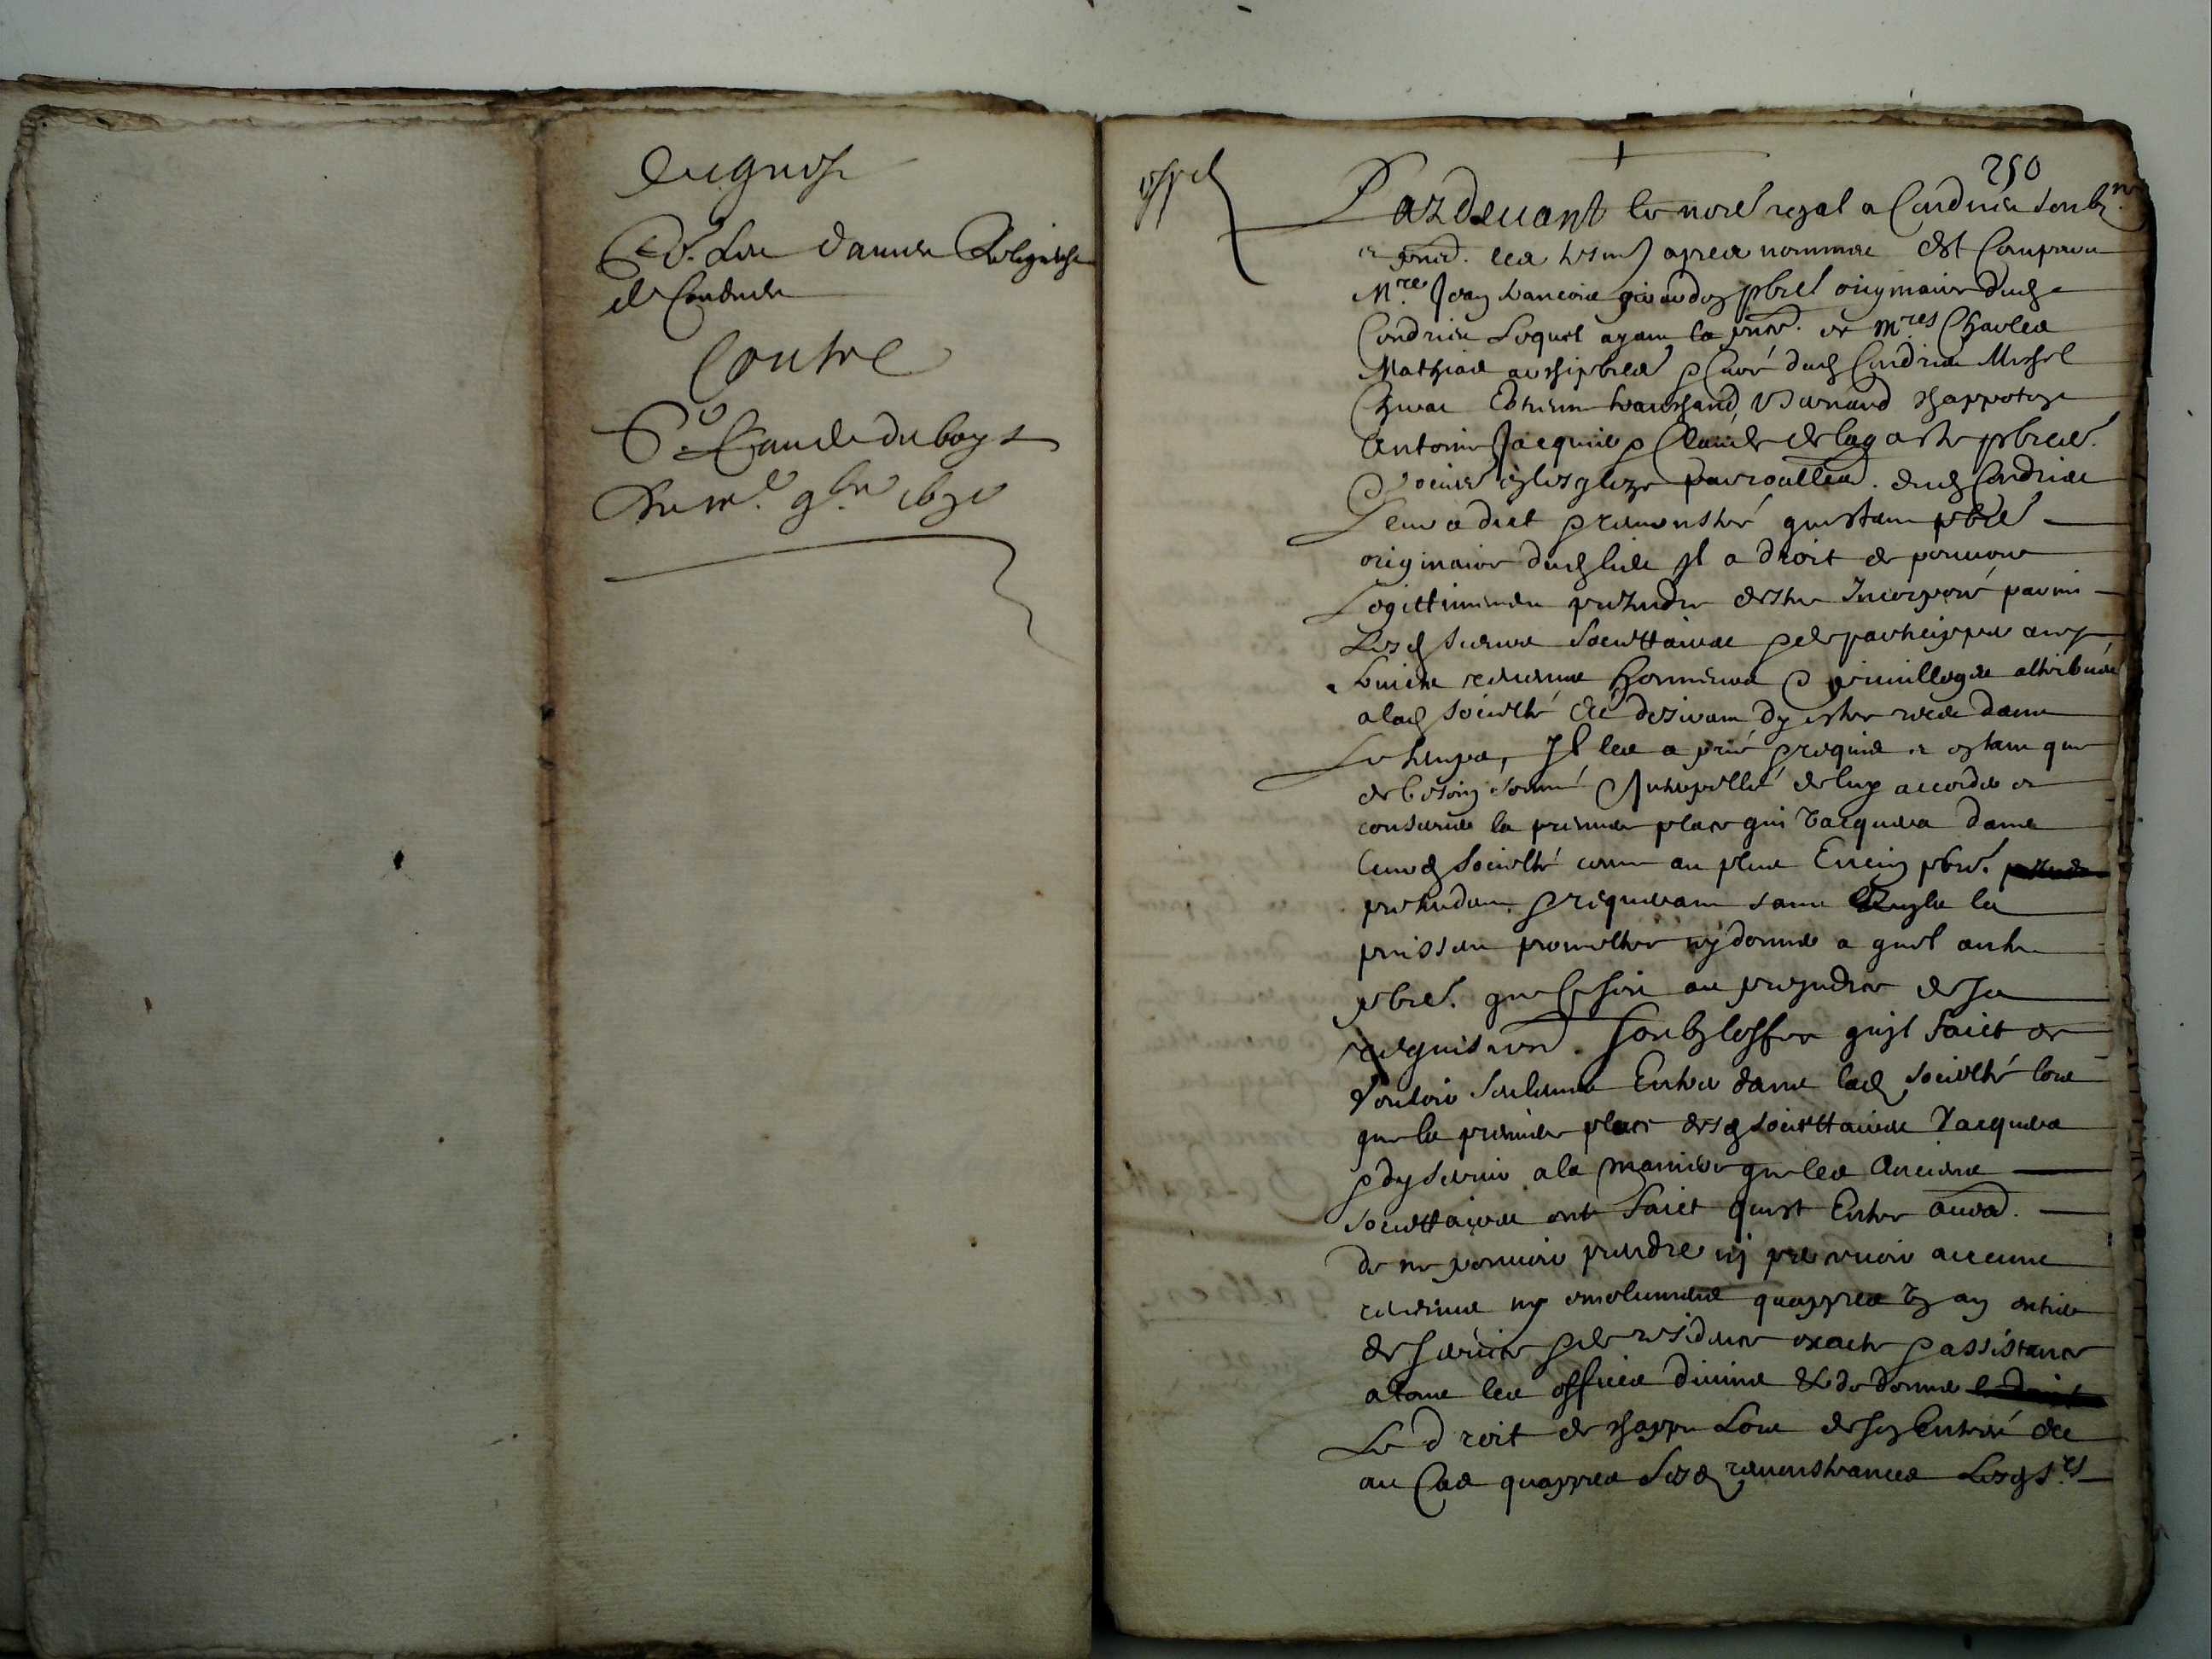 Contre
Sr Claude duboys
9bre
250
exped
Pardevant le nore royal a Condrieu soubzne
et pnce. les tesmoins apres nommes est Comparu
Mre Jean francois pbre originaire dud
Condrieu Lequel ayant la pnce. de Mres Charles
Mathias aussi pbre & Curé dud Condrieu Michel
Estienne Marchand, Bernard Chappoton
Antoine Jacquin & Claude delagarde pbres.
& esglize parroalle. dud Condrieu
Leur a dict & remonstré questant pbre
originaire dud lieu Il a droit de pouvoir
Legittimement pretendre destre Incorporé parmi
Lesd sieurs Societtaires & de participper aux
fruicts revenus honneurs & privilleges attribués
a lad societté Et desirant dy estre receu dans
Le temps, Il les a prié & requis et entant que
de besoing sommé & Interpellé de luy accorder et
conserver la premiere place qui vacquera dans
leurd societté comme au plus Encien pbre.
pretendant & requerant sans quils la
puissent promettre ny donner a quel autre
pbre. que ce soit au prejudice de sa
requisition. Soubz loffre quil faict de
vouloir seulement Entrer dans lad societté lors
que la premiere place desd societtaires vacquera
& dy servir a la maniere que les Anciens
societtaires ont faict quest Entre autres.
de ne pouvoir prendre ny percevoir aucuns
revenus ny emolumens quapprès Un an entier
de service & de residence exacte & assistance
a tous les offices divins Et de donner
Le droit de chappe Lors de son Entrée Et
au Cas quapprès lesd remonstrances Lesd srs